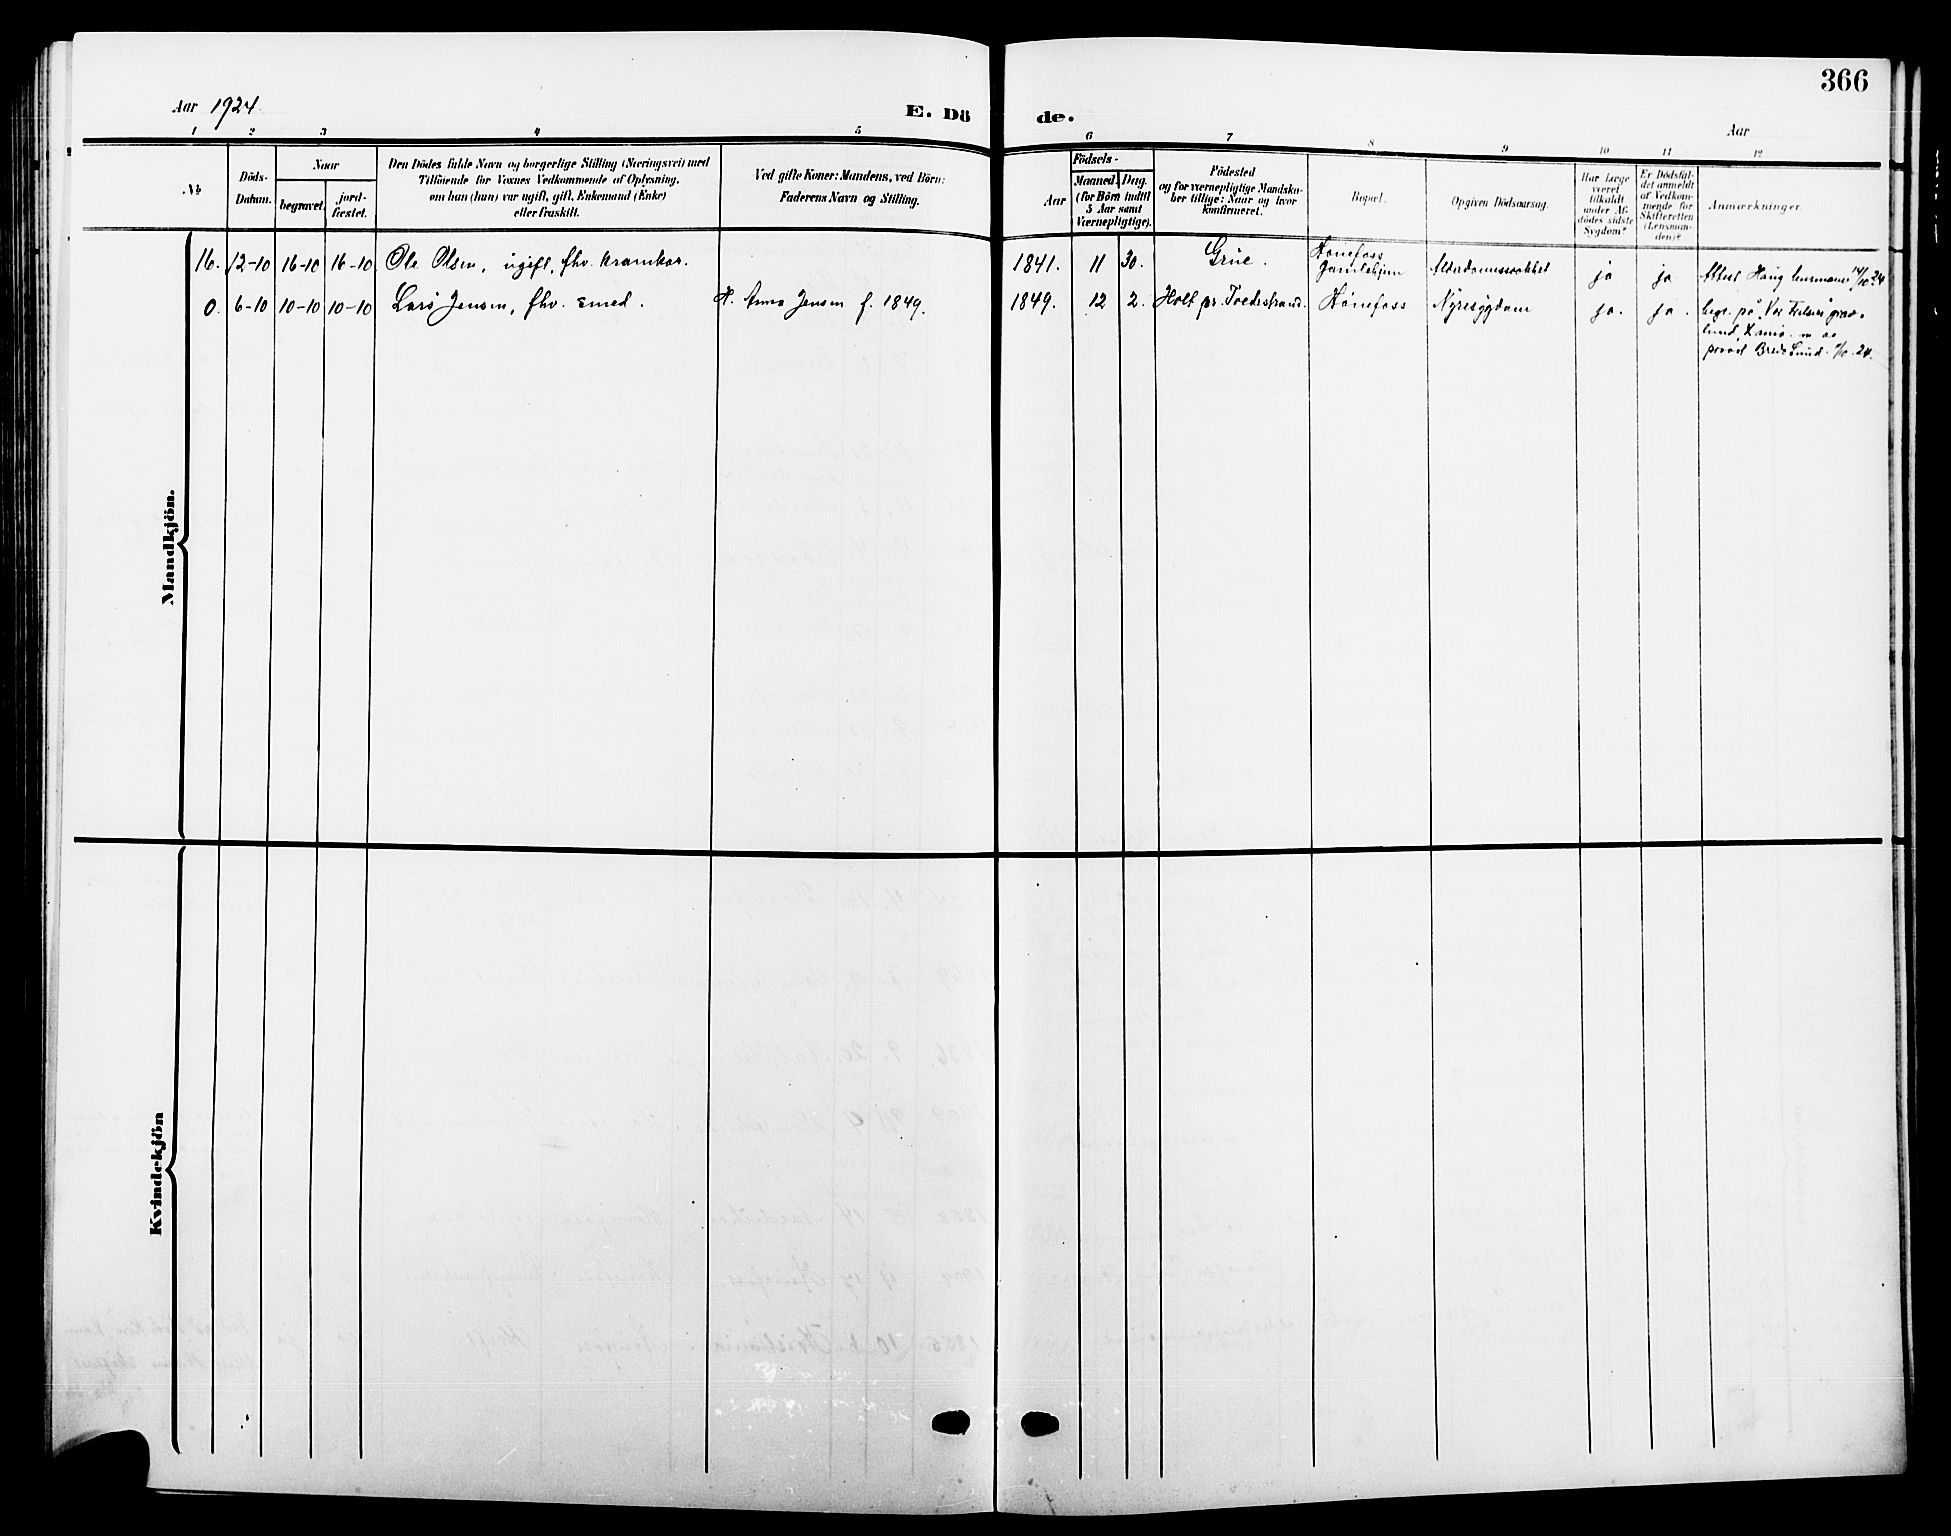 366
Aar 1924.
E. Dö de.
Aar
1 2 3 4 5 6 7 8 9 10 11 12
No
Döds-
Datum.
Naar
begravet.
jord-
fæstet.
Den Dödes fulde Navn og borgerlige Stilling (Næringsvei) med
Tilföiende for Voxnes Vedkommende af Oplysning,
om han (hun) var ugift, gift, Enkemand (Enke)
eller fraskilt.
Ved gifte Koner: Mandens, ved Börn:
Faderens Navn og Stilling.
Födsels-
Aar
Maaned.
Dag.
(for Börn indtil
5 Aar samt
Værnepligtige).
Födested
og for værnepligtige Mandska-
ber tillige: Naar og hvor
konfirmeret.
Bopæl.
Opgiven Dödsaarsag.
Har Læge
været
tilkaldt
under Af-
dödes sidste
Sygdom?
Er Dödsfal-
det anmeldt
af Vedkom-
mende for
Skifteretten
(Lensman-
den)?
Anmærkninger.
Mandkjön.
16. 12-10 16-10 16-10 Ole Olsen, ugift, fhv. kramkar. 1841. 11 30. Grue. Hønefoss
Gamlehjem Alderdomssvakhet ja ja. Attest Haug lensmann 14/10 24
0. 6-10 10-10 10-10 Lars Jensen, fhv. smed. H. Anna Jensen f. 1849. 1849. 12 2. Holt pr. Tvedestrand. Hønefoss Nyresygdom ja. ja. begr. på "Vor Frelsers" grav-
lund, Kr.ania.
prost Brede Lund. 24.
Kvindekjön